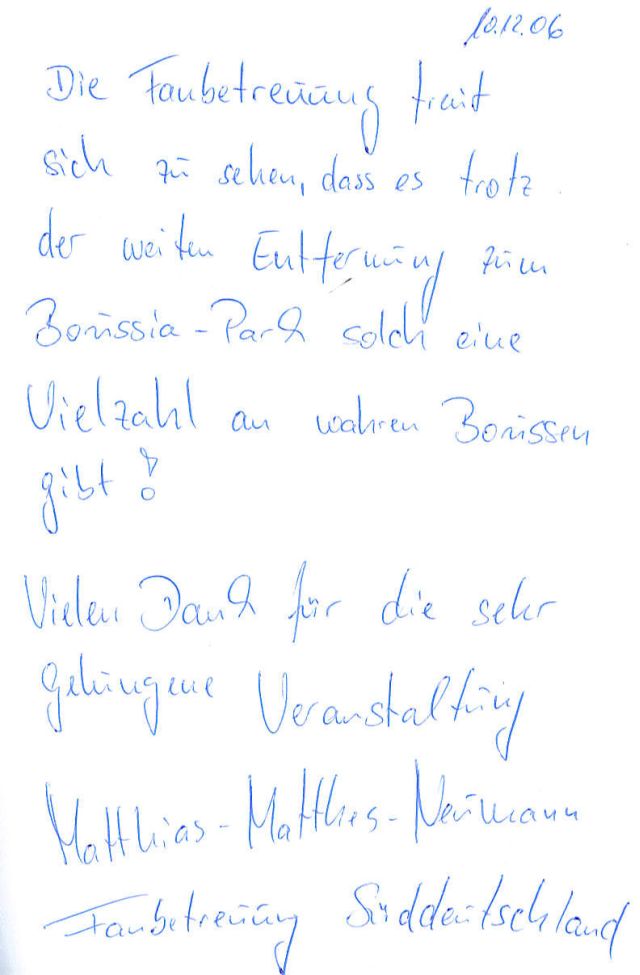 10.12.06
Die Fanbetreuung freut
sich zu sehen, dass es trotz
der weiten Entfernung zum
Borussia-Park solch eine
Vielzahl an wahren Borussen
gibt!
Vielen Dank für die sehr
gelungene Veranstaltung
Matthias-Matthes-Neumann
Fanbetreuung Süddeutschland